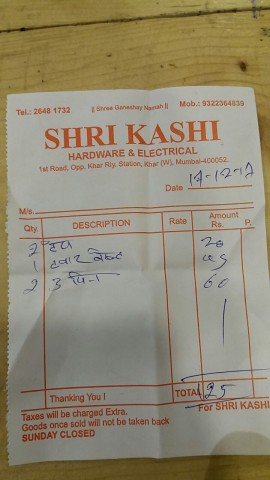 Tel.: 2648 1732 || Shree Ganeshay Namah || Mob.: 9322364839
SHRI KASHI
HARDWARE & ELECTRICAL
1st Road, Opp. Khar Rly. Station, Khar (W), Mumbai-400052.
Date
M/s.
Qty. DESCRIPTION Rate Amount Rs. P.
2 20
1 45
2 3 पिन 60
Thanking You ! TOTAL 125
Taxes will be charged Extra. For SHRI KASHI
Goods once sold will not be taken back
SUNDAY CLOSED